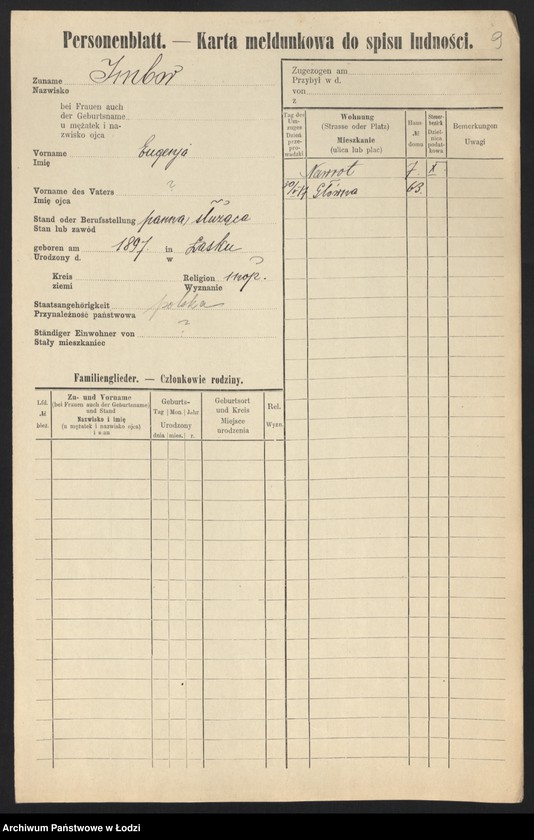 Personenblatt. — Karta meldunkowa do spisu ludności.
9
Zuname Imbor
Nazwisko
bei Frauen auch
der Geburtsname
u mężatek i na-
zwisko ojca
Vorname Eugenja
Imię
Vorname des Vaters ?
Imię ojca
Stand oder Berufsstellung panna, służąca
Stan lub zawód
geboren am 1897. in Łasku
Urodzony d. w
Kreis
ziemi
Religion
Wyznanie
Staatsangehörigkeit polska
Przynależność państwowa
Ständiger Einwohner von ?
Stały mieszkaniec
Zugezogen am
Przybył w d.
von
z
Tag des Um-zuges Dzień prze-pro-wadzki
Wohnung
(Strasse oder Platz)
Mieszkanie
(ulica lub plac)
Haus № domu
Steuer-bezirk Dziel-nica podat-kowa
Bemerkungen
Uwagi
Nawrot 7 X
Główna 63
Familienglieder. — Członkowie rodziny.
Lfd. № bież.
Zu- und Vorname
(bei Frauen auch der Geburtsname)
und Stand
Nazwisko i imię
(u mężatek i nazwisko ojca)
i stan
Geburts-
Tag Mon. Jahr
Urodzony
dnia mies. r.
Geburtsort
und Kreis
Miejsce
urodzenia
Rel.
Wyzn.
Archiwum Państwowe w Łodzi